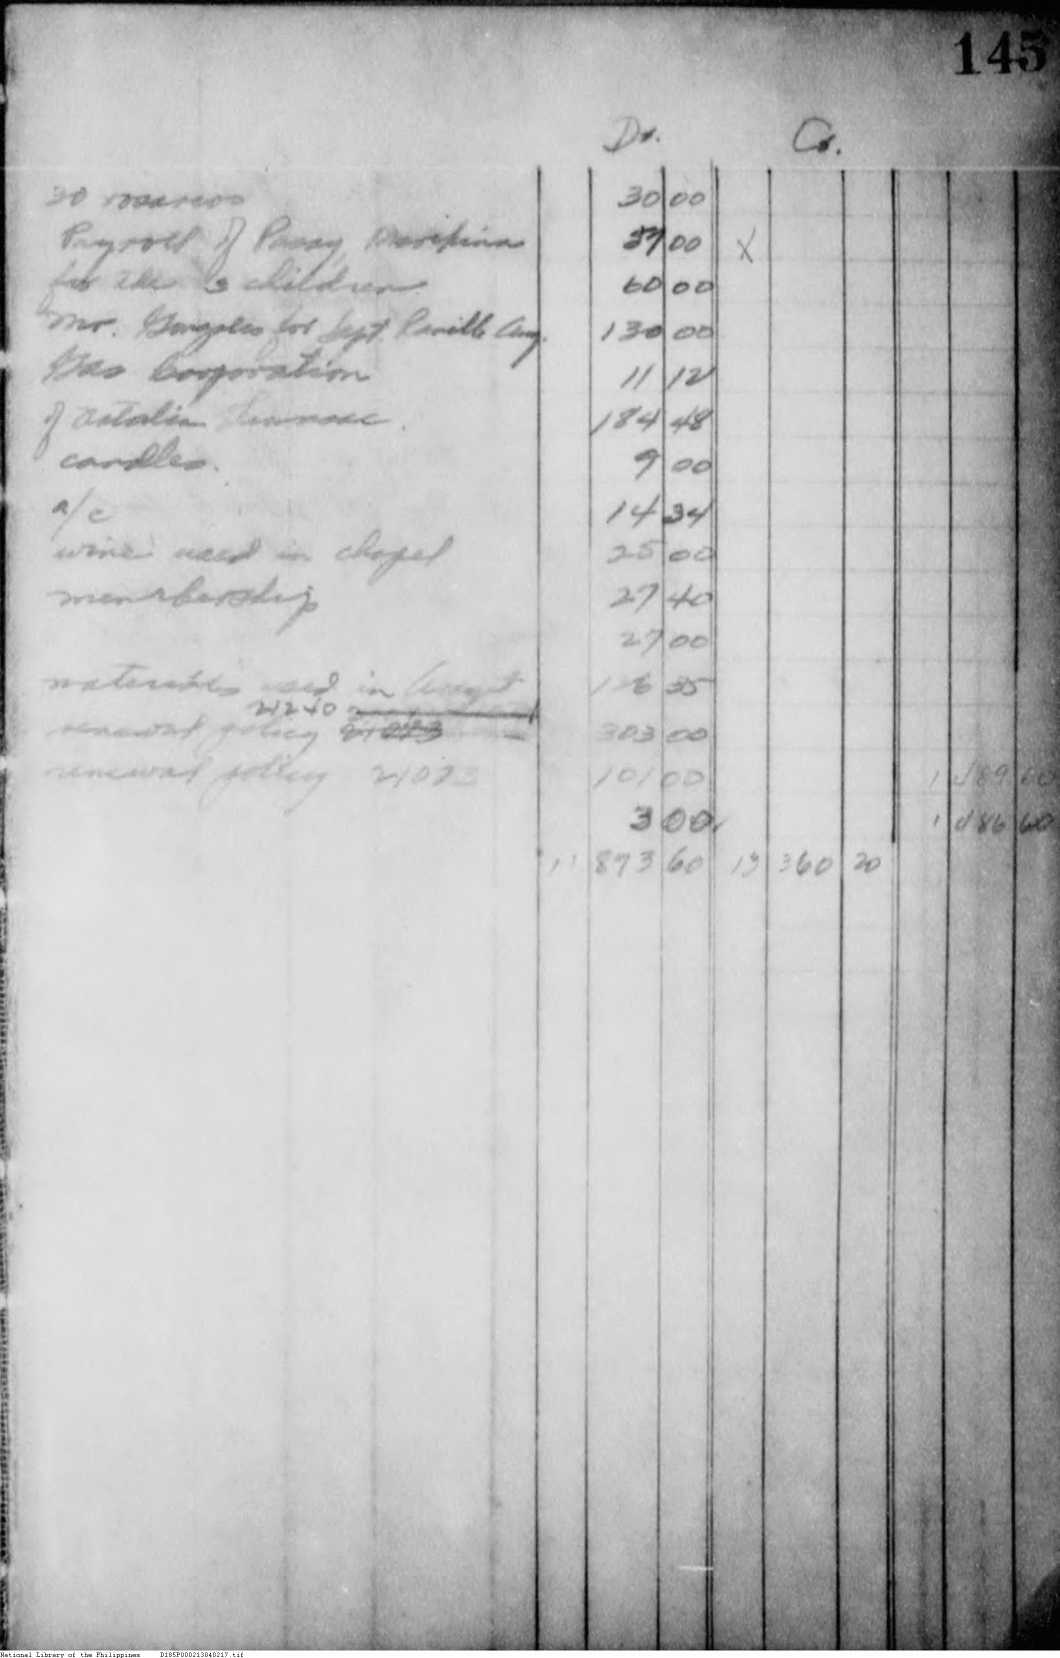 145
Dr. Cr.
30 rosarios 30 00
Payroll of Pasay, Marikina 37 00 X
for the 3 children 60 00
Mr. Gonzales for Sept. Aug. 130 00
Gas Corporation 11 12
of Natalia 184 48
candles. 9 00
a/c 14 34
wine used in chapel 25 00
membership 27 40
27 00
materials used in August 126 35
21240
renewal policy 21073 303 00
renewal policy 21073 101 00
3 00
11 873 60 19 360 20
National Library of the Philippines D185P000213040217.tif